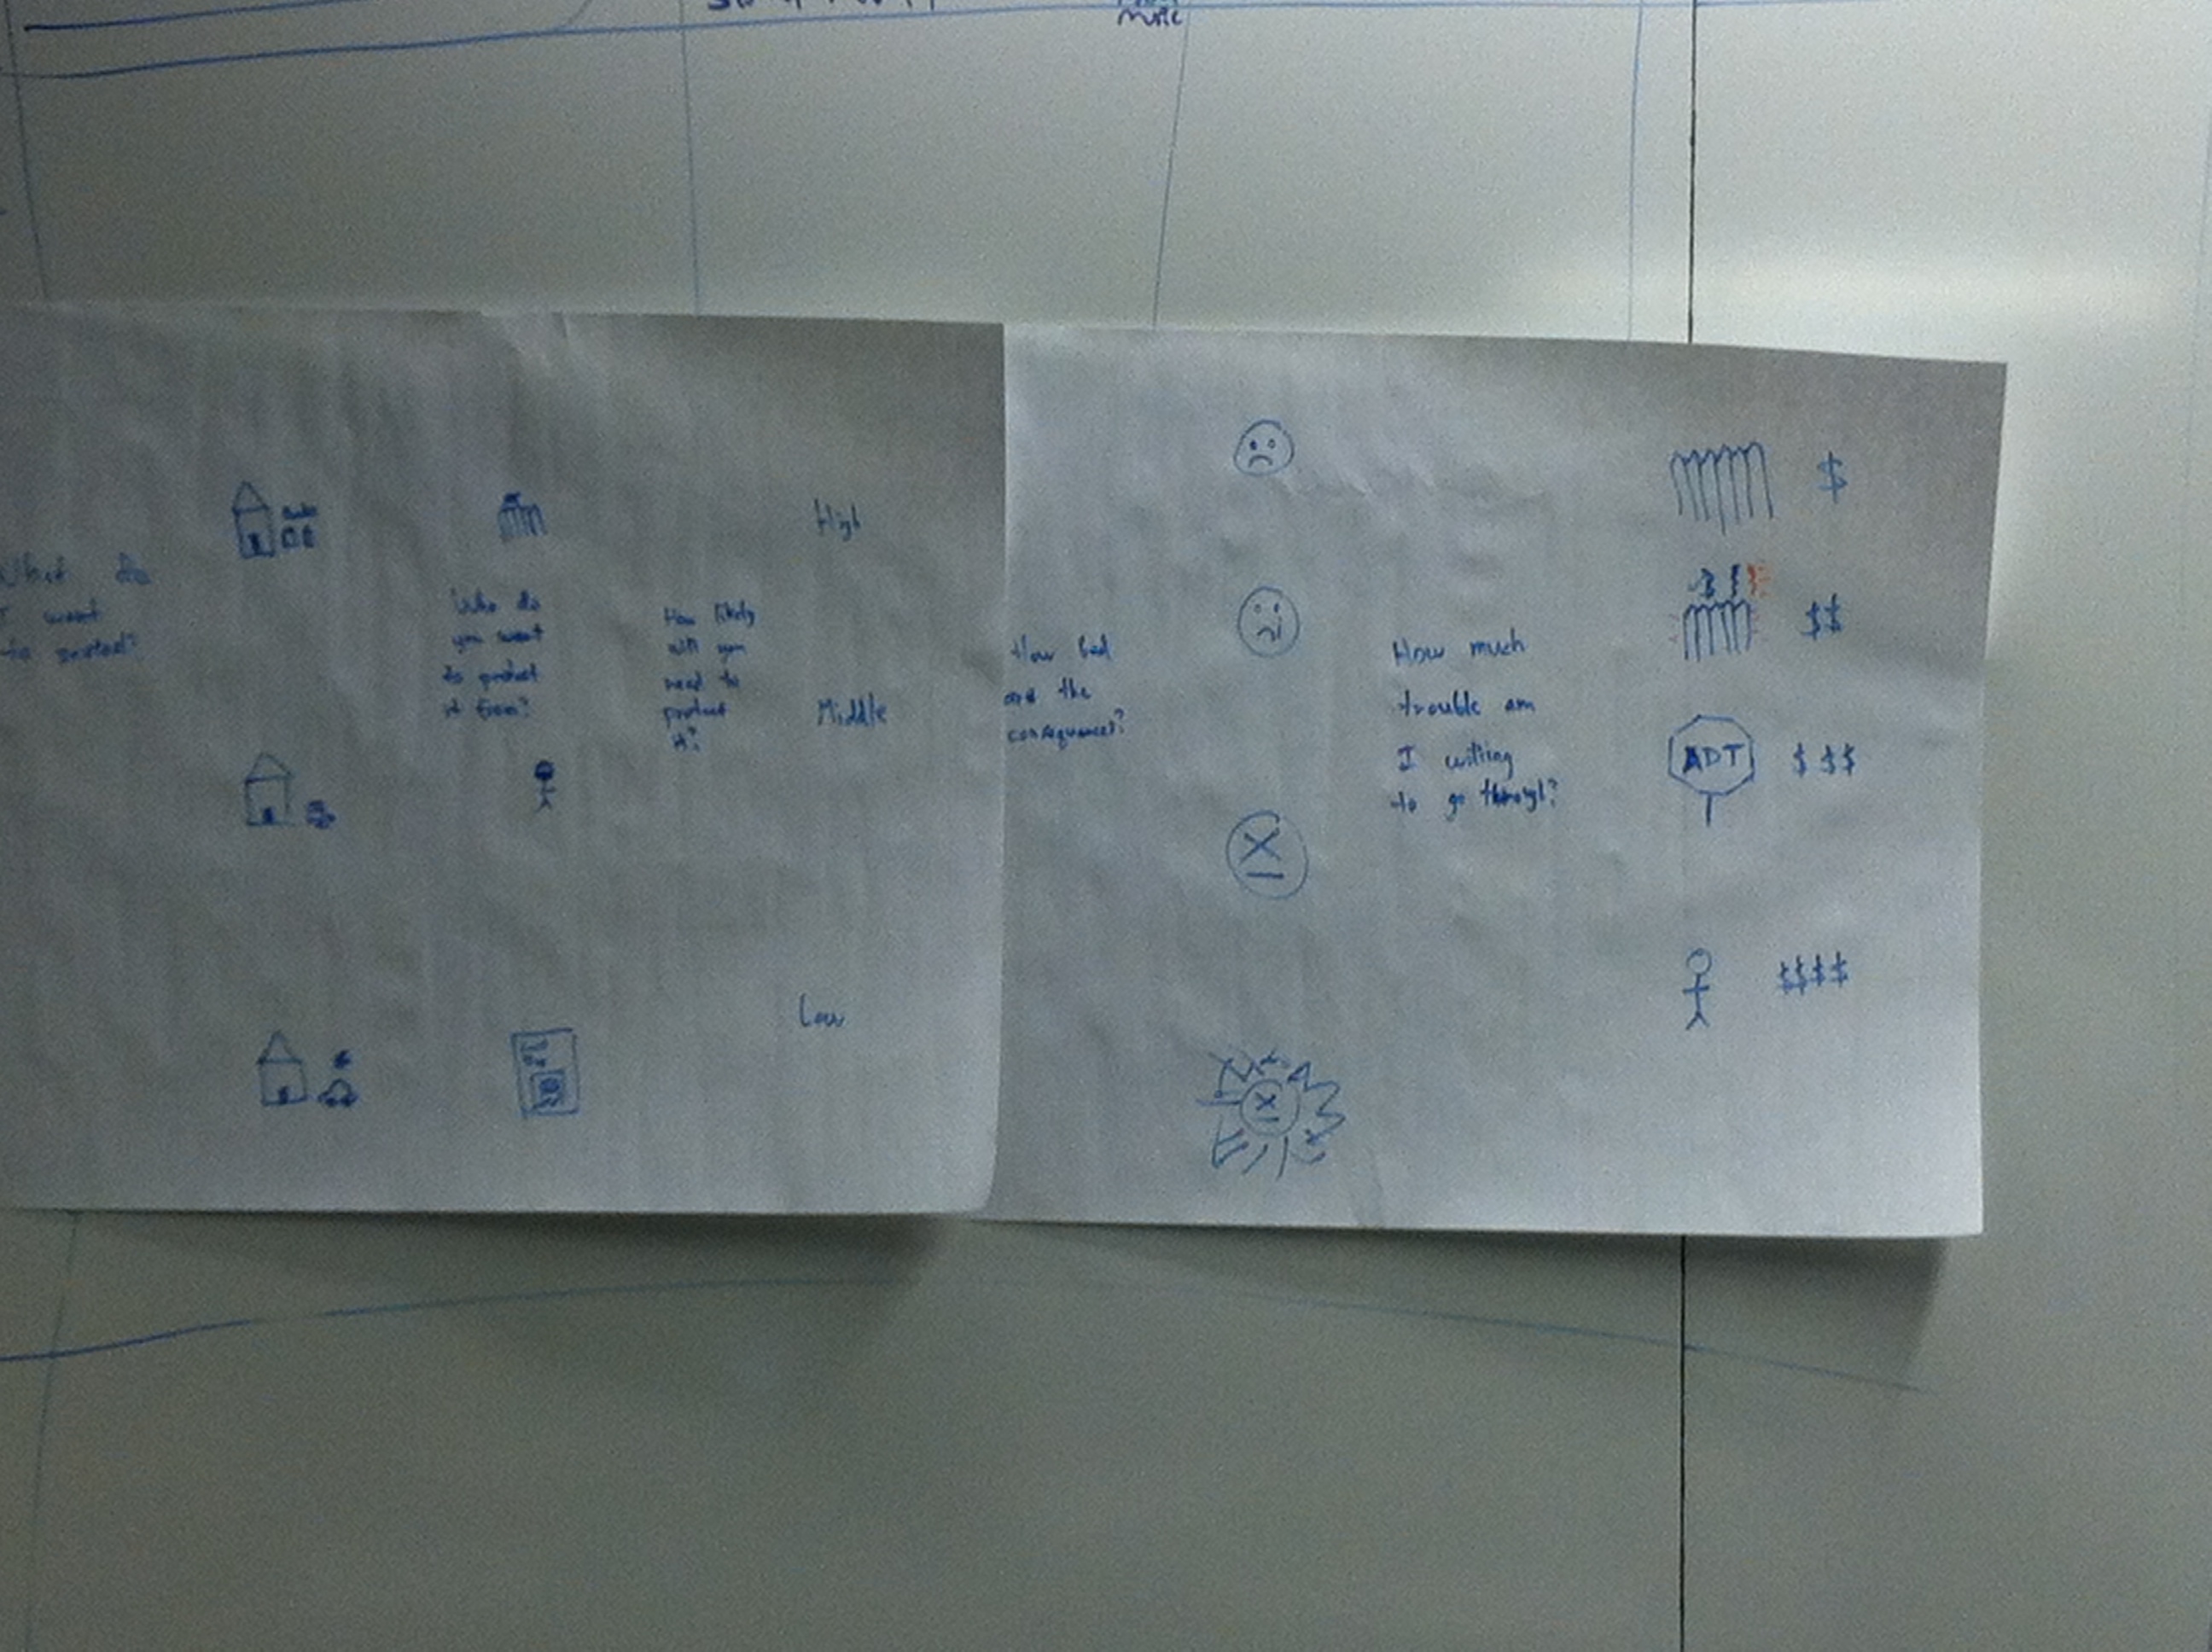 Music
What do
I want
to protect?
Who do
you want
to protect
it from?
How likely
will you
need to
protect
it?
High
Middle
Low
How bad
are the
consequences?
How much
trouble am
I willing
to go through?
$
$$
ADT $$$
$$$$